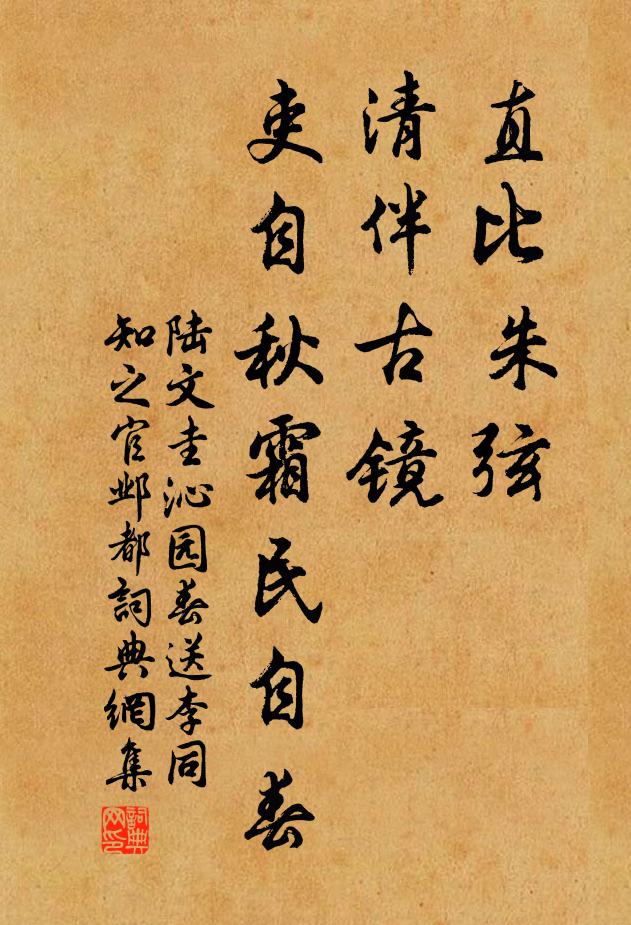 直比朱弦
清伴古镜
吏自秋霜民自春
陆文圭沁园春送李同
知之官邺都詞典網集
詞典
网印